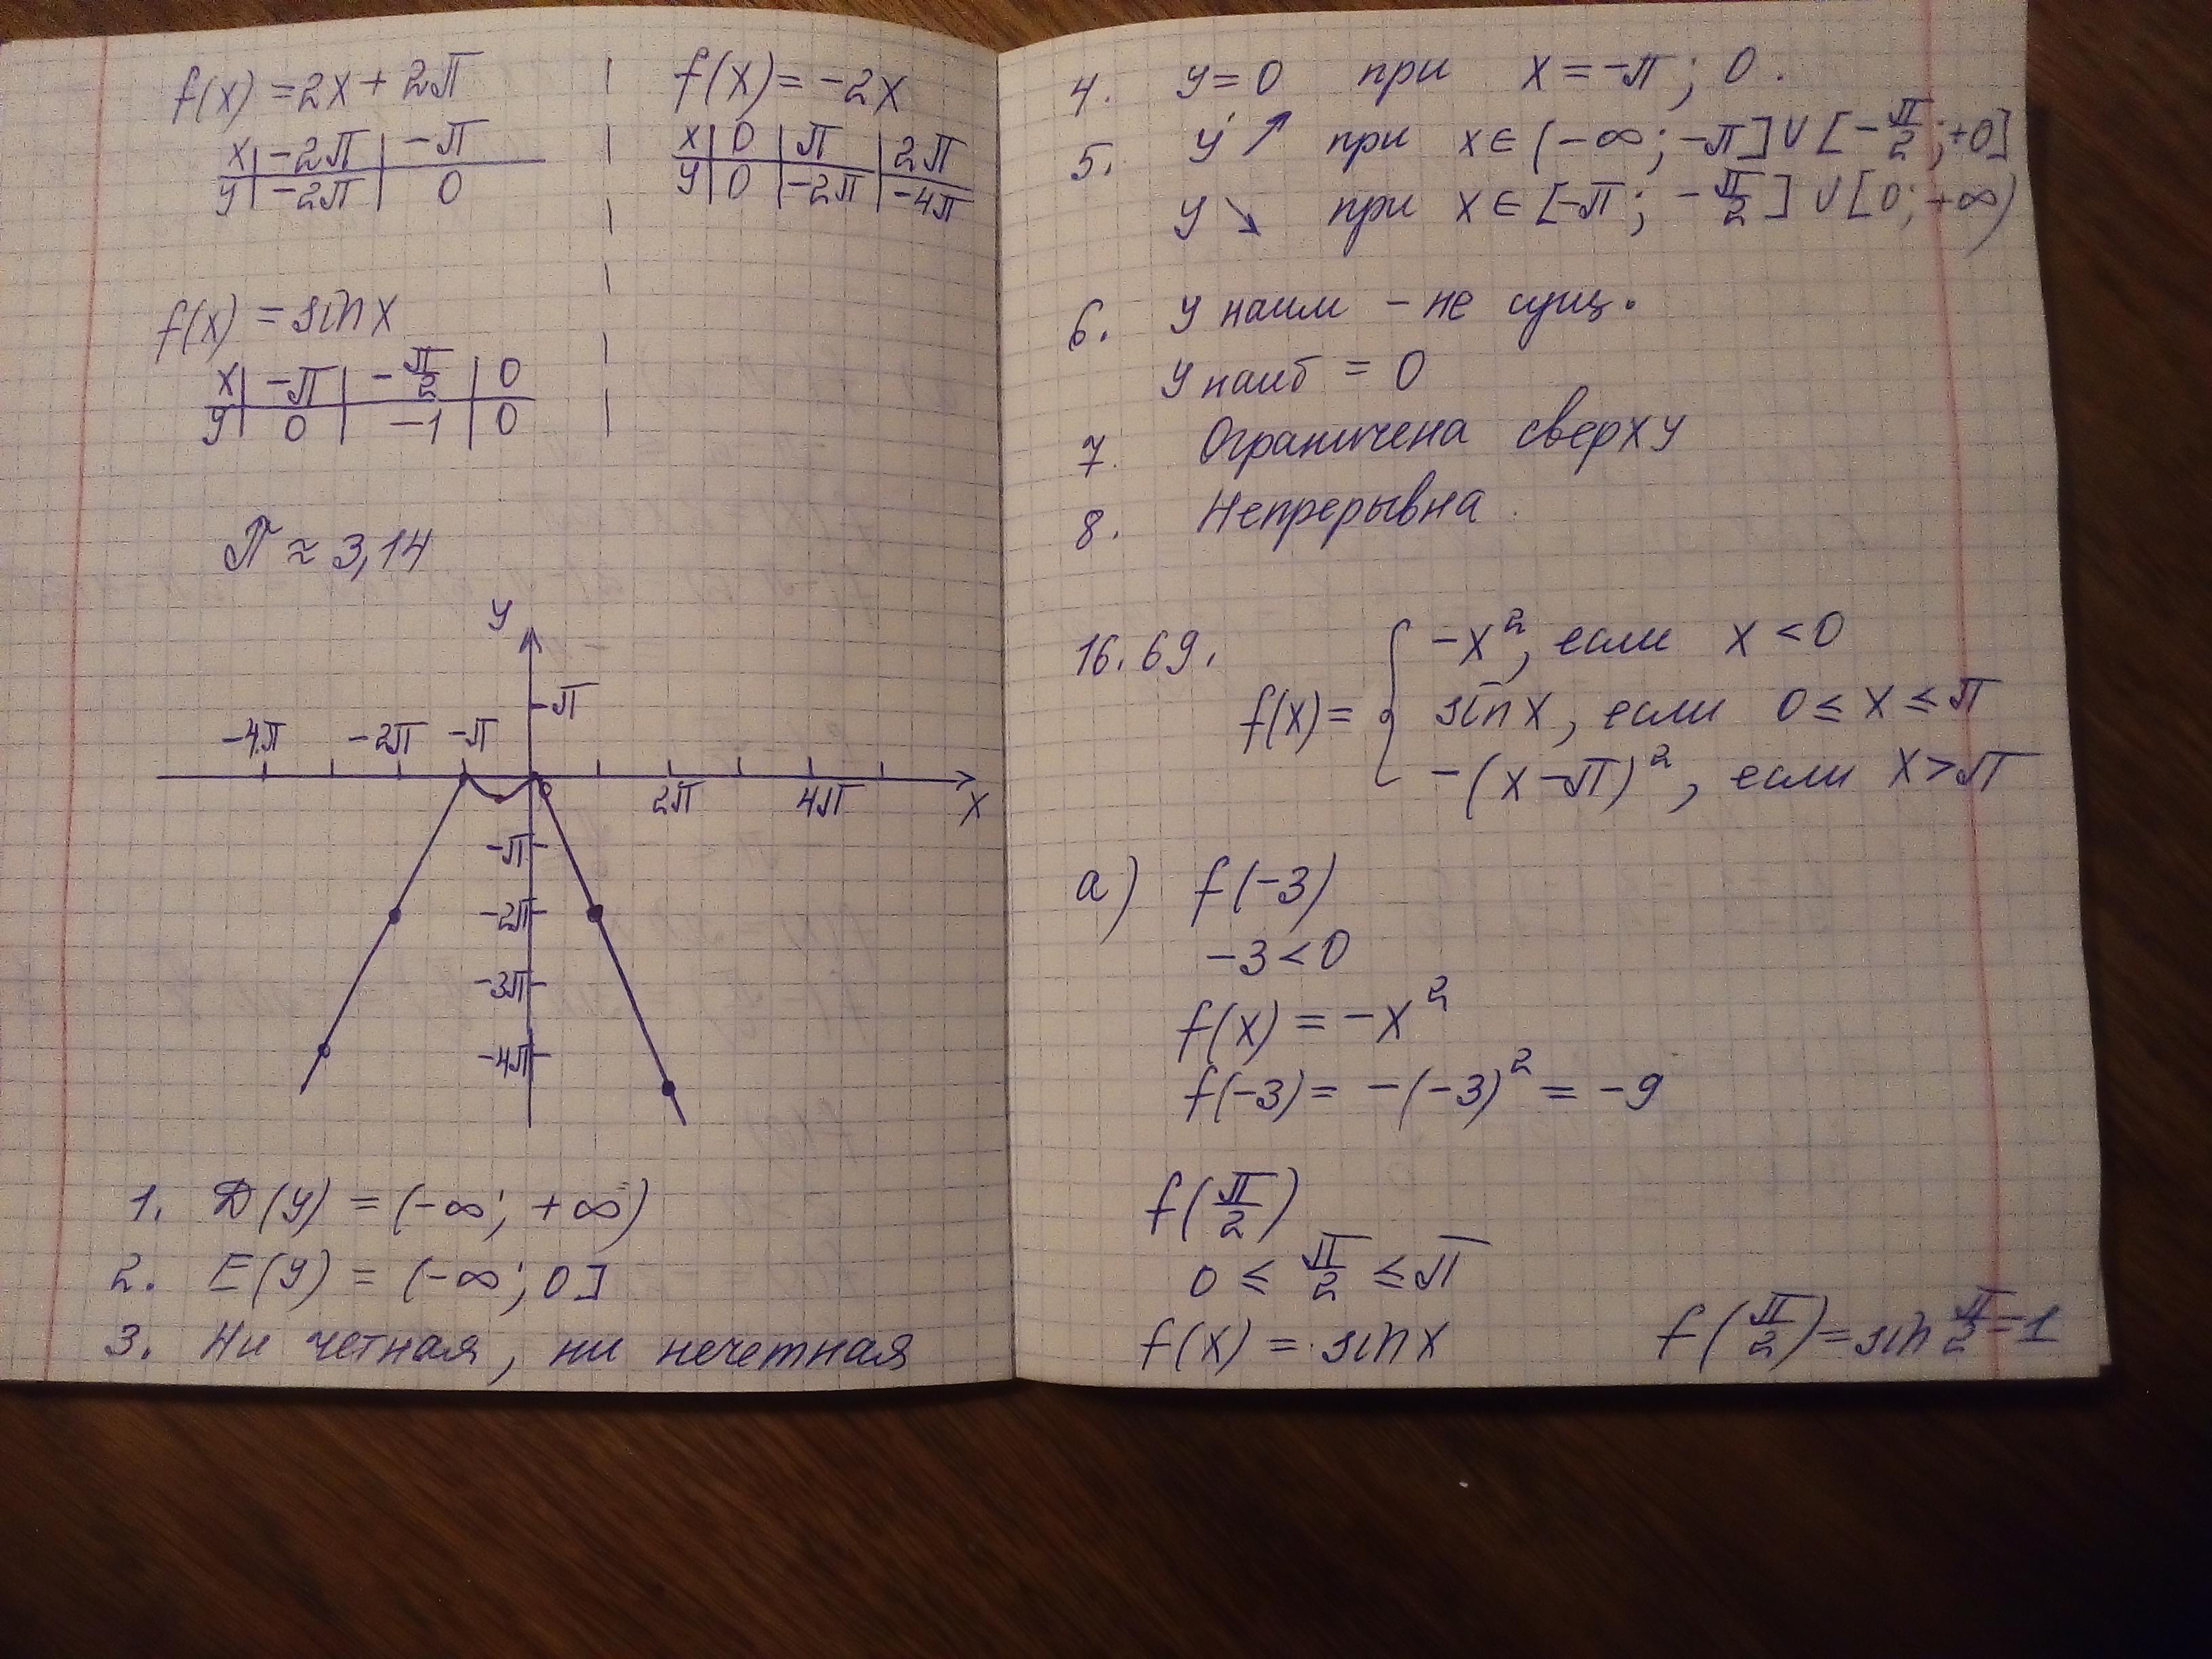 f(x) = 2x + 2π
x | -2π | -π
y | -2π | 0
f(x) = -2x
x | 0 | π | 2π
y | 0 | -2π | -4π
f(x) = sinx
x | -π | -π/2 | 0
y | 0 | -1 | 0
π ≈ 3,14
y
π
-4π -2π -π
0 2π 4π x
-π
-2π
-3π
-4π
1. D(y) = (-∞; +∞)
2. E(y) = (-∞; 0]
3. Ни четная, ни нечетная
4. y = 0 при x = -π; 0.
5. y ↗ при x ∈ (-∞; -π] ∪ [-π/2; +0]
y ↘ при x ∈ [-π; -π/2] ∪ [0; +∞)
6. y наим - не сущ.
y наиб = 0
7. Ограничена сверху
8. Непрерывна.
16.69.
f(x) = { -x², если x < 0
sinx, если 0 ≤ x ≤ π
-(x-π)², если x > π
а) f(-3)
-3 < 0
f(x) = -x²
f(-3) = -(-3)² = -9
f(π/2)
0 ≤ π/2 ≤ π
f(x) = sinx f(π/2) = sin π/2 = 1